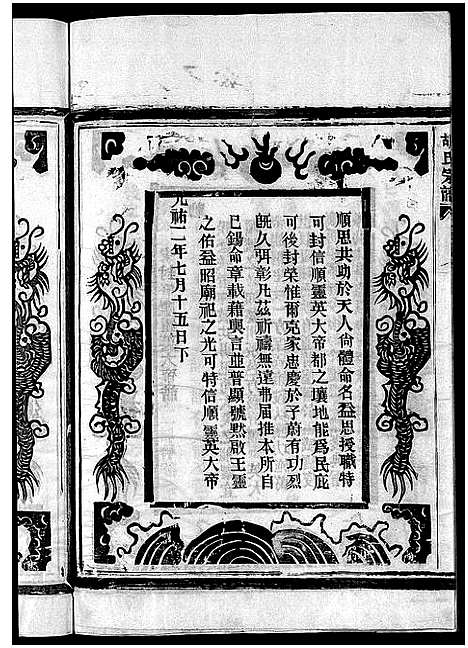 胡氏宗譜
順思共助於天人尙體命名益思授職特
可封信順靈英大帝都之壤地能爲民庇
可後封榮惟爾克家忠慶於子蔚有功烈
旣久弭彰凡茲祈禱無達弗屆推本所自
已錫命章載藉輿言並普顯號黙啟王靈
之佑益昭廟祀之光可特信順靈英大帝
元祐二年七月十五日下